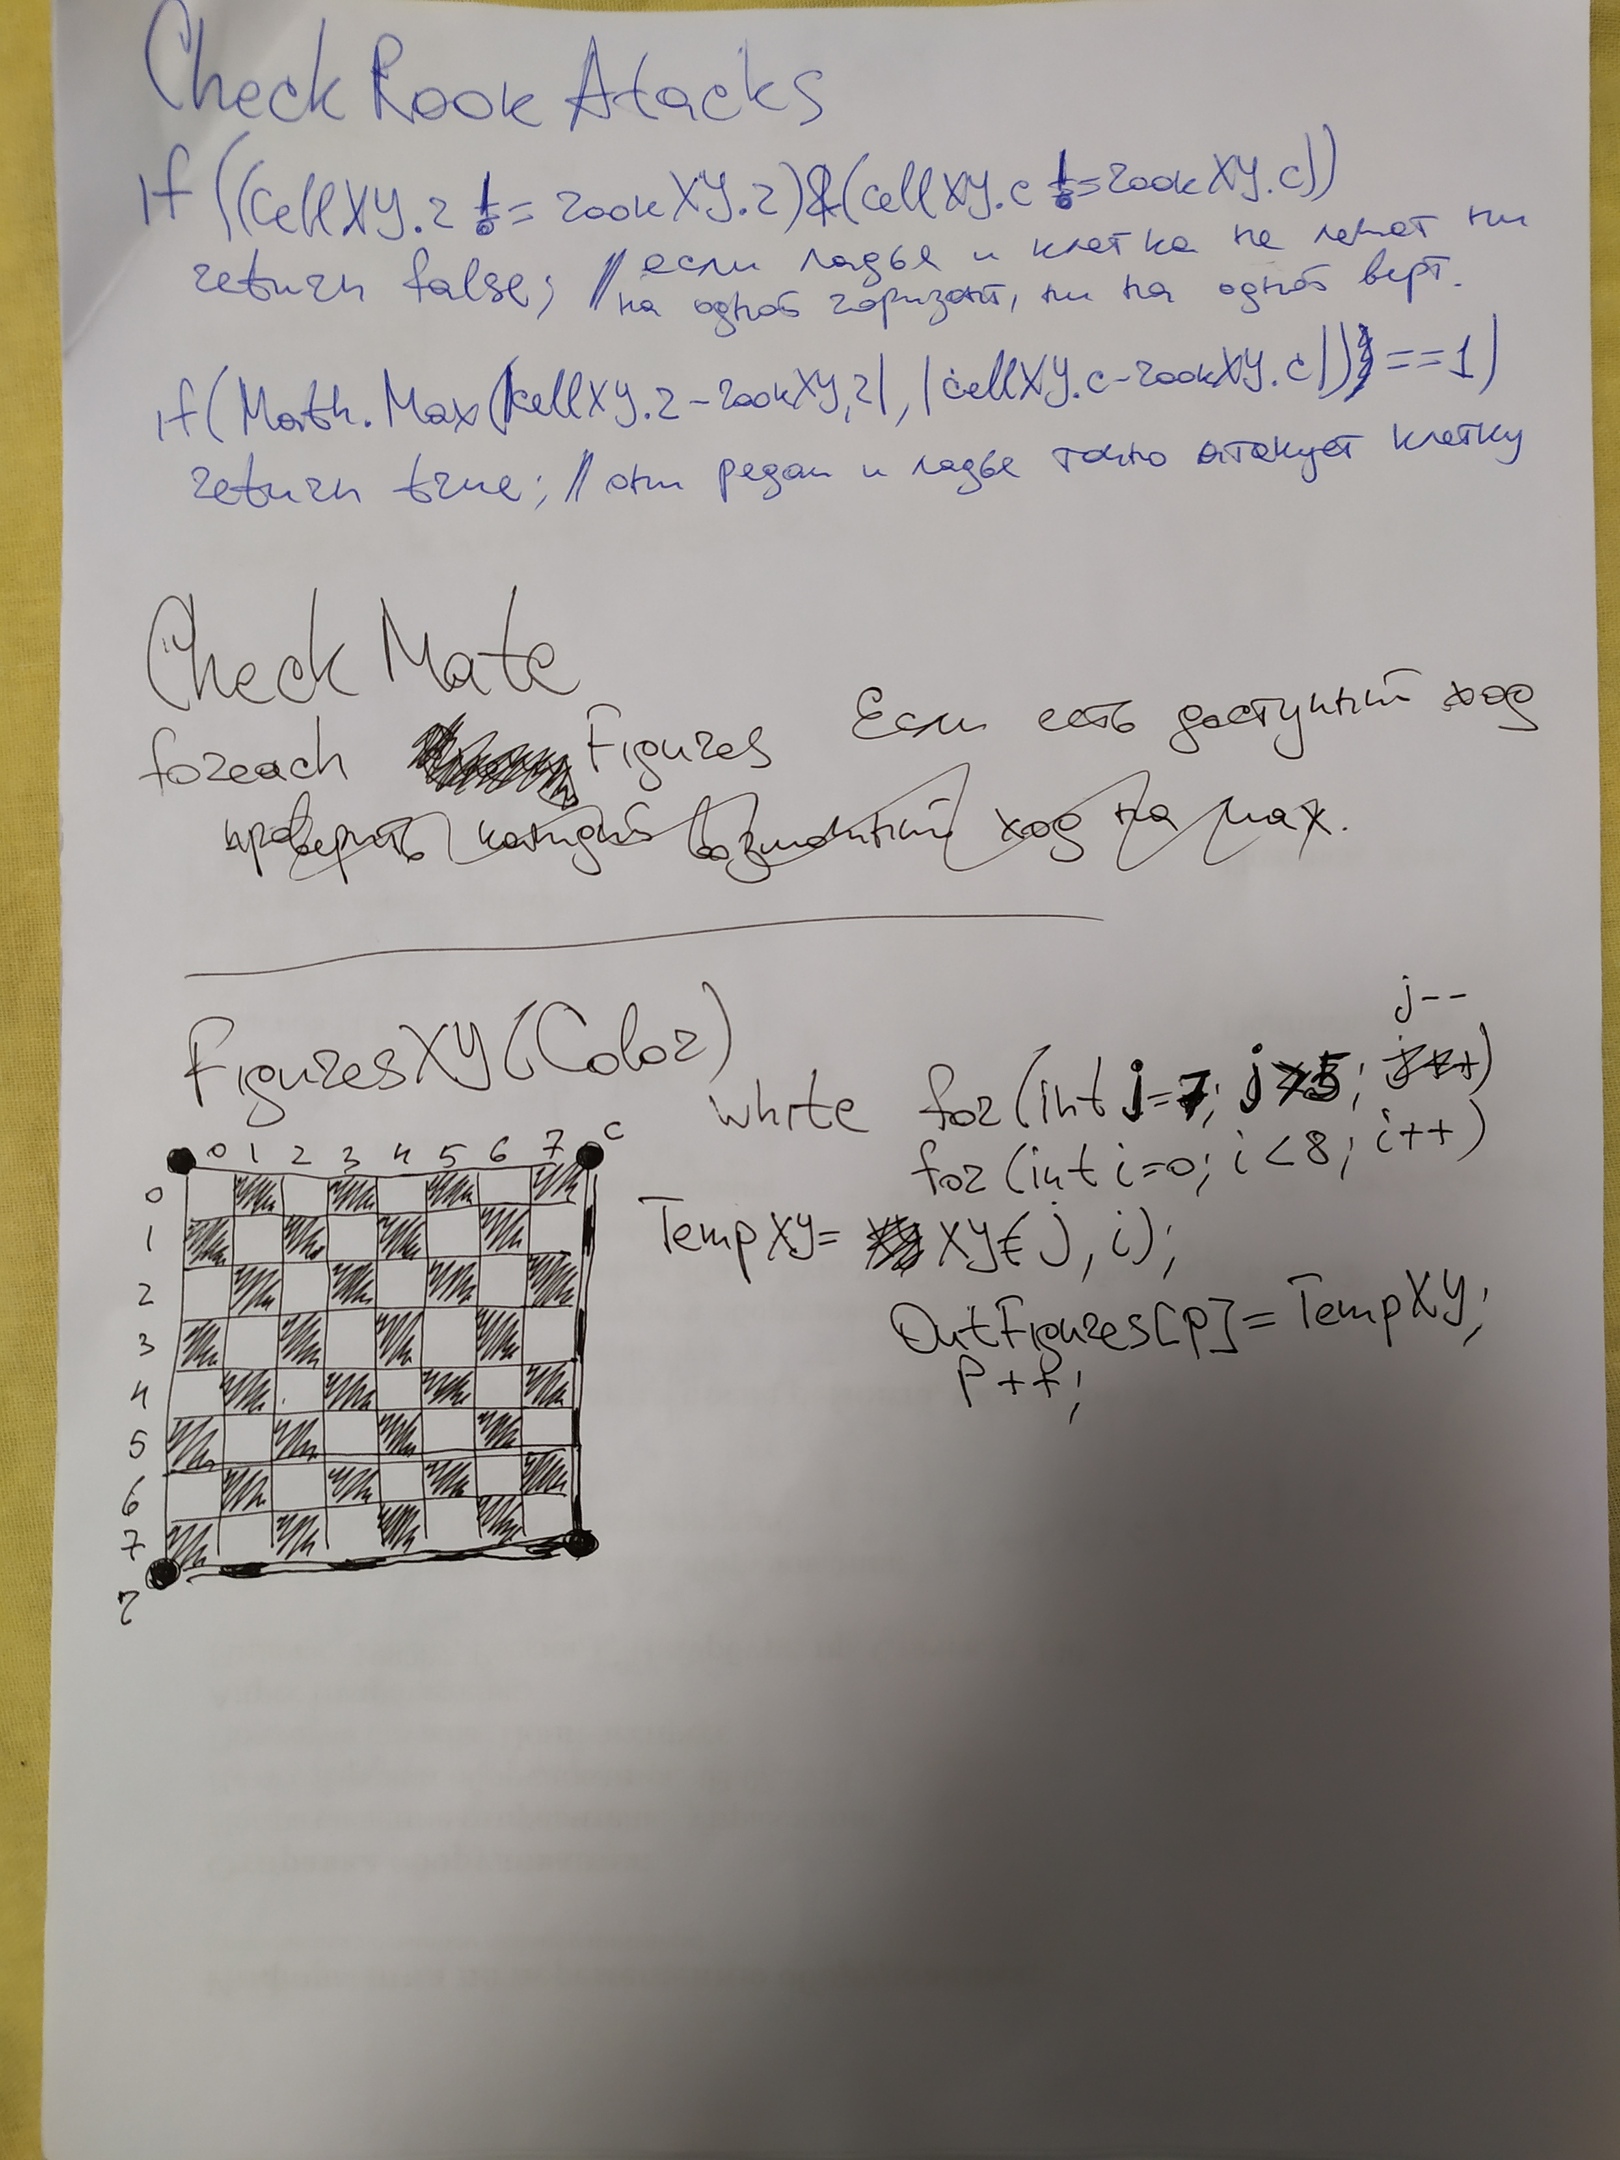 Check Rook Atacks
if ((cellXY.r != rookXY.r)&(cellXY.c != rookXY.c))
return false; // если ладья и клетка не лежат ни
на одной горизонт, ни на одной верт.
if (Math.Max(|cellXY.r-rookXY.r|, |cellXY.c-rookXY.c|)==1)
return true; // они рядом и ладья точно атакует клетку
Check Mate
foreach Figures Если есть доступный ход
проверить каждый возможный ход на шах.
FiguresXY(Color)
j--
white for (int j=7; j>5; j++)
for (int i=0; i<8; i++)
TempXY= XY(j, i);
OutFigures[p]=TempXY;
p++;
0 1 2 3 4 5 6 7 c
0
1
2
3
4
5
6
7
r